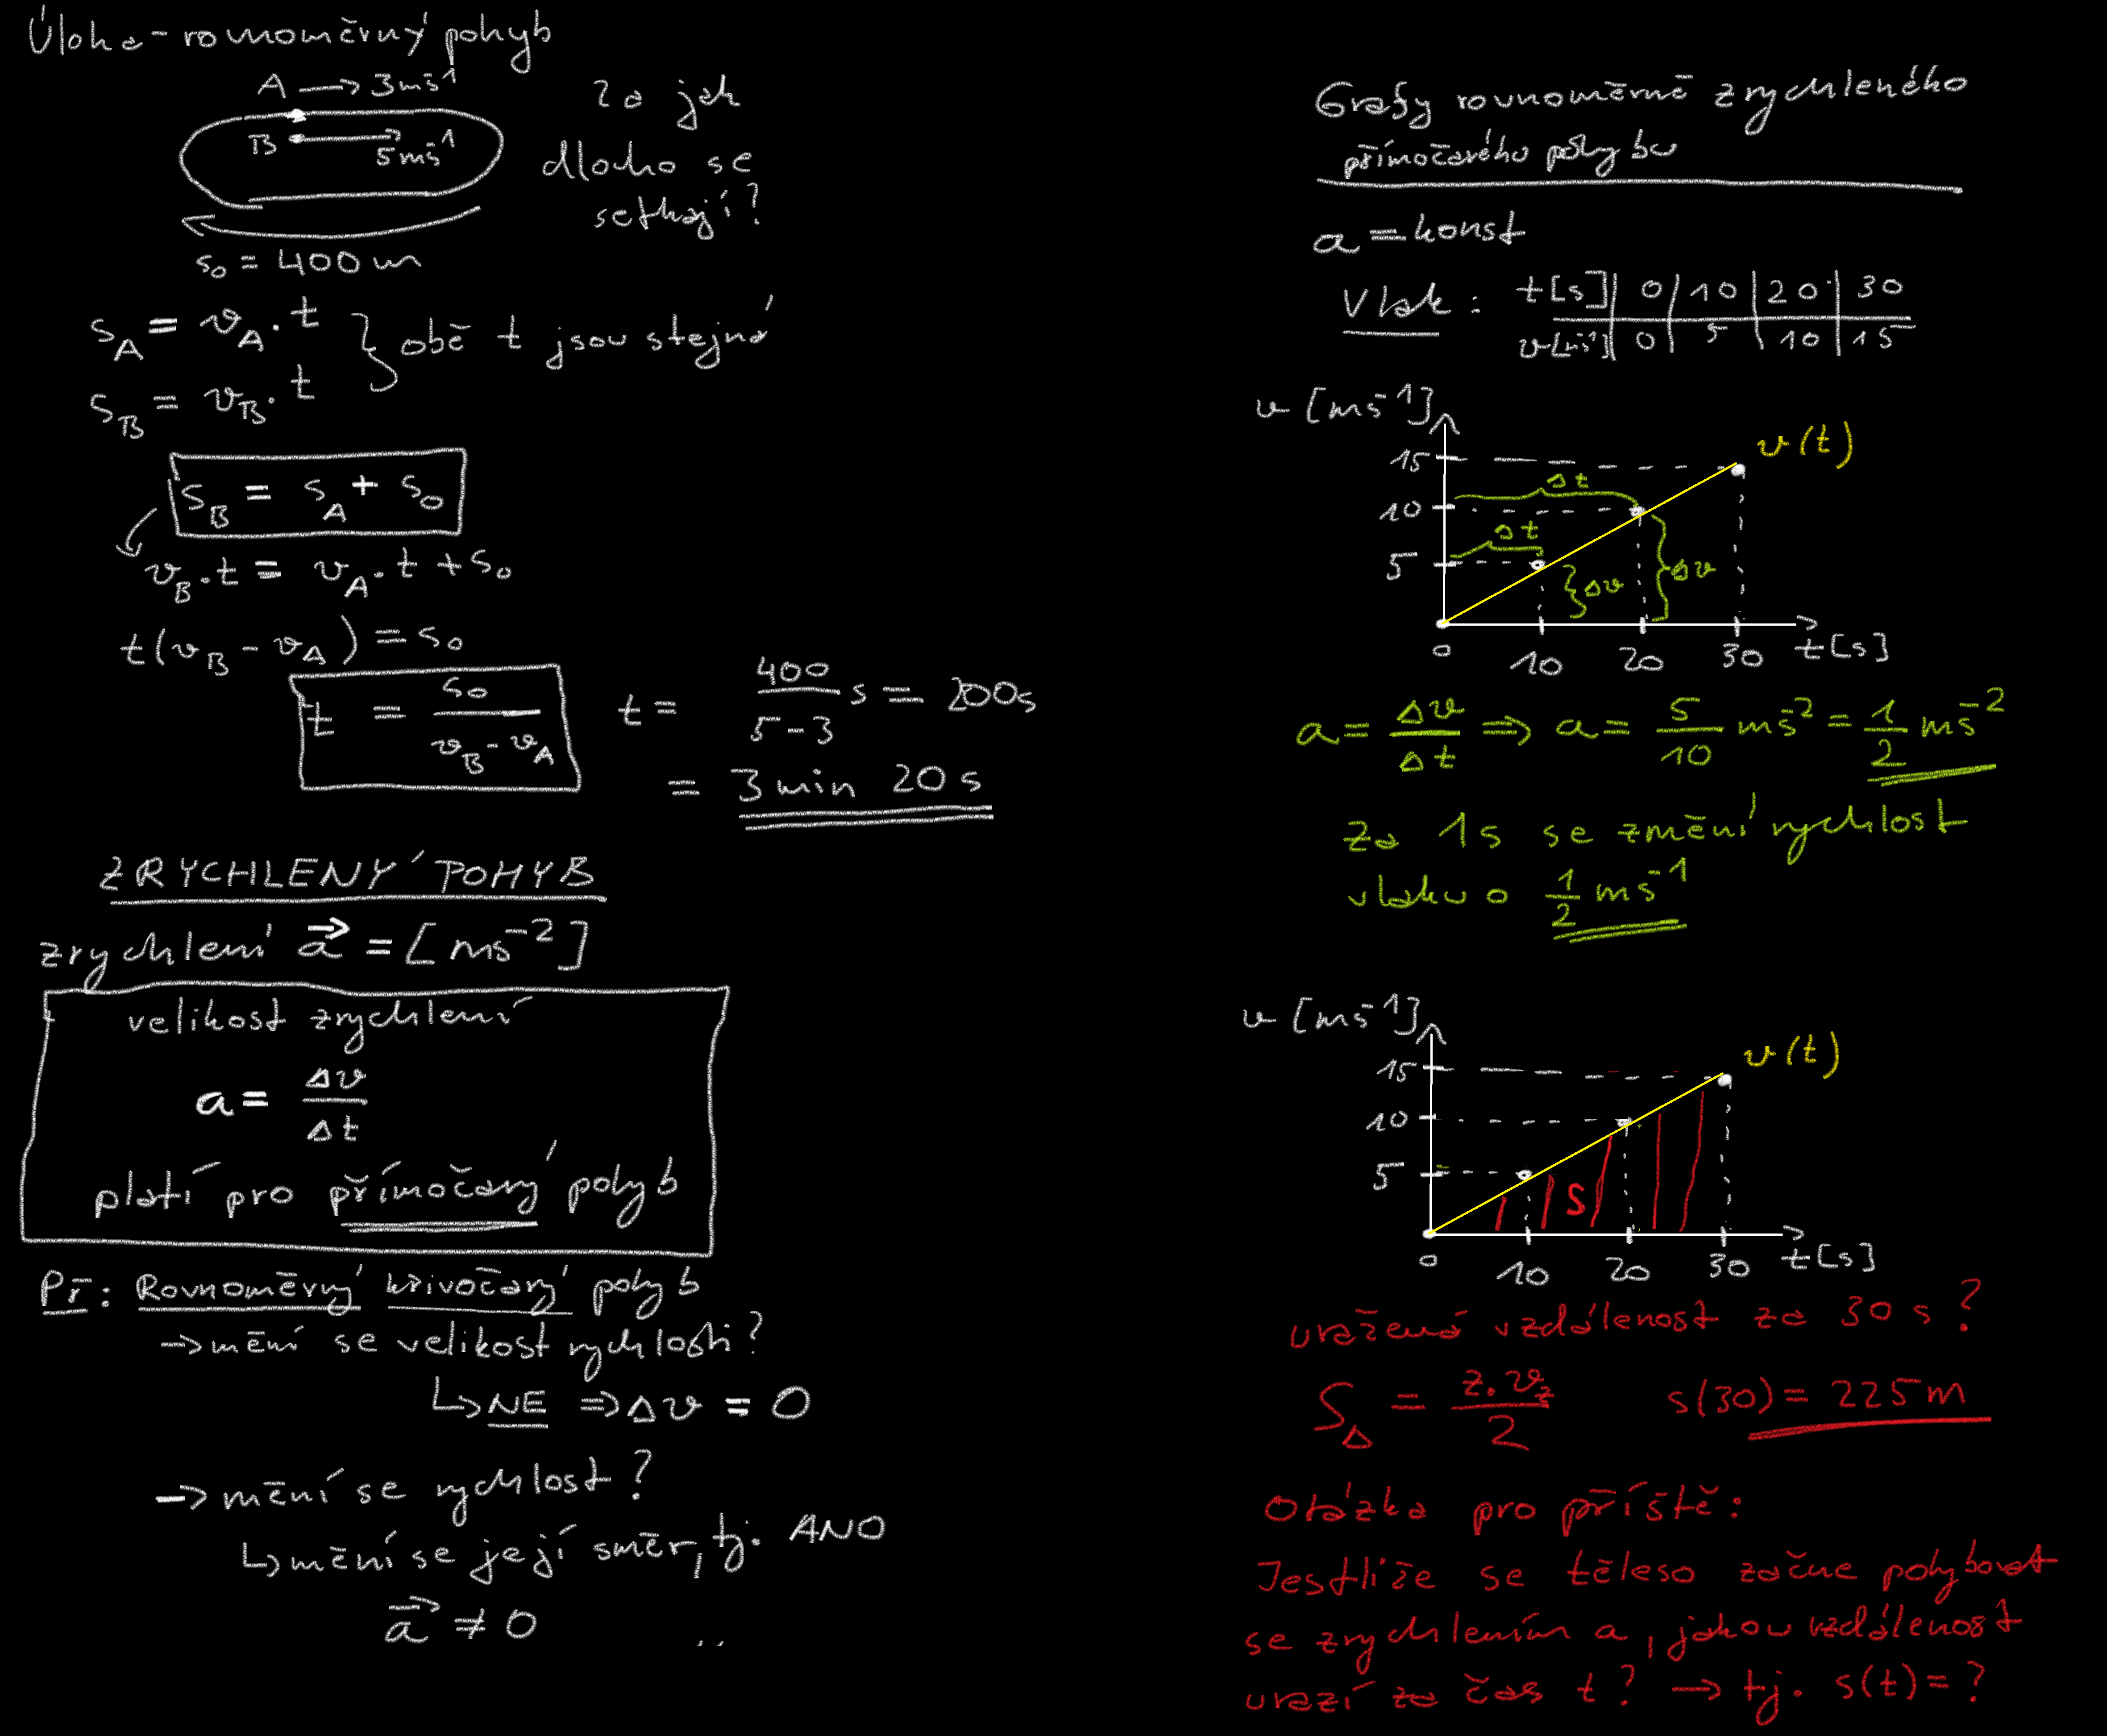 Úloha - rovnoměrný pohyb
A → 3 ms⁻¹
B
5 ms⁻¹
Za jak
dlouho se
setkají?
s₀ = 400 m
s_A = v_A · t
s_B = v_B · t
} obě t jsou stejná
s_B = s_A + s₀
v_B · t = v_A · t + s₀
t(v_B - v_A) = s₀
t = s₀ / (v_B - v_A)
t = 400 / (5-3) s = 200 s
= 3 min 20 s
ZRYCHLENÝ POHYB
zrychlení a⃗ = [ms⁻²]
velikost zrychlení
a = Δv / Δt
platí pro přímočarý pohyb
Př: Rovnoměrný křivočarý pohyb
→ mění se velikost rychlosti?
↳ NE ⇒ Δv = 0
→ mění se rychlost?
↳ mění se její směr, tj. ANO
a⃗ ≠ 0
Grafy rovnoměrně zrychleného
přímočarého pohybu
a = konst
Vlak: t[s] | 0 | 10 | 20 | 30
v[ms⁻¹] | 0 | 5 | 10 | 15
v [ms⁻¹]
v(t)
15
Δt
10
Δt
5
Δv
Δv
0 10 20 30 t[s]
a = Δv / Δt ⇒ a = 5/10 ms⁻² = 1/2 ms⁻²
Za 1 s se změní rychlost
vlaku o 1/2 ms⁻¹
v [ms⁻¹]
v(t)
15
10
5
S
0 10 20 30 t[s]
uražená vzdálenost za 30 s?
S_Δ = z · v_z / 2
s(30) = 225 m
Otázka pro příště:
Jestliže se těleso začne pohybovat
se zrychlením a, jakou vzdálenost
urazí za čas t? → tj. s(t) = ?